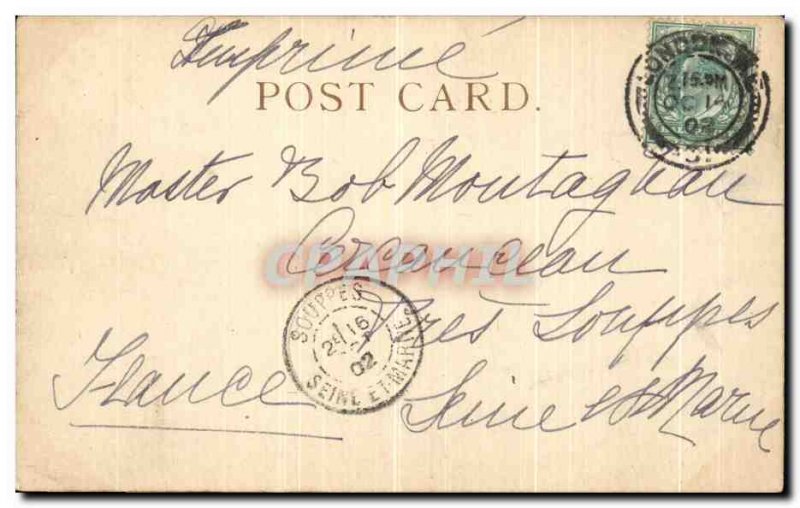 Imprimé
POST CARD.
LONDON
2.15 PM
OC 14
02
Master Bob Montaghan
Cercanceau
CPAPHIL
Près Souppes
SOUPPES
16
02
SEINE ET MARNE
France
Seine et Marne